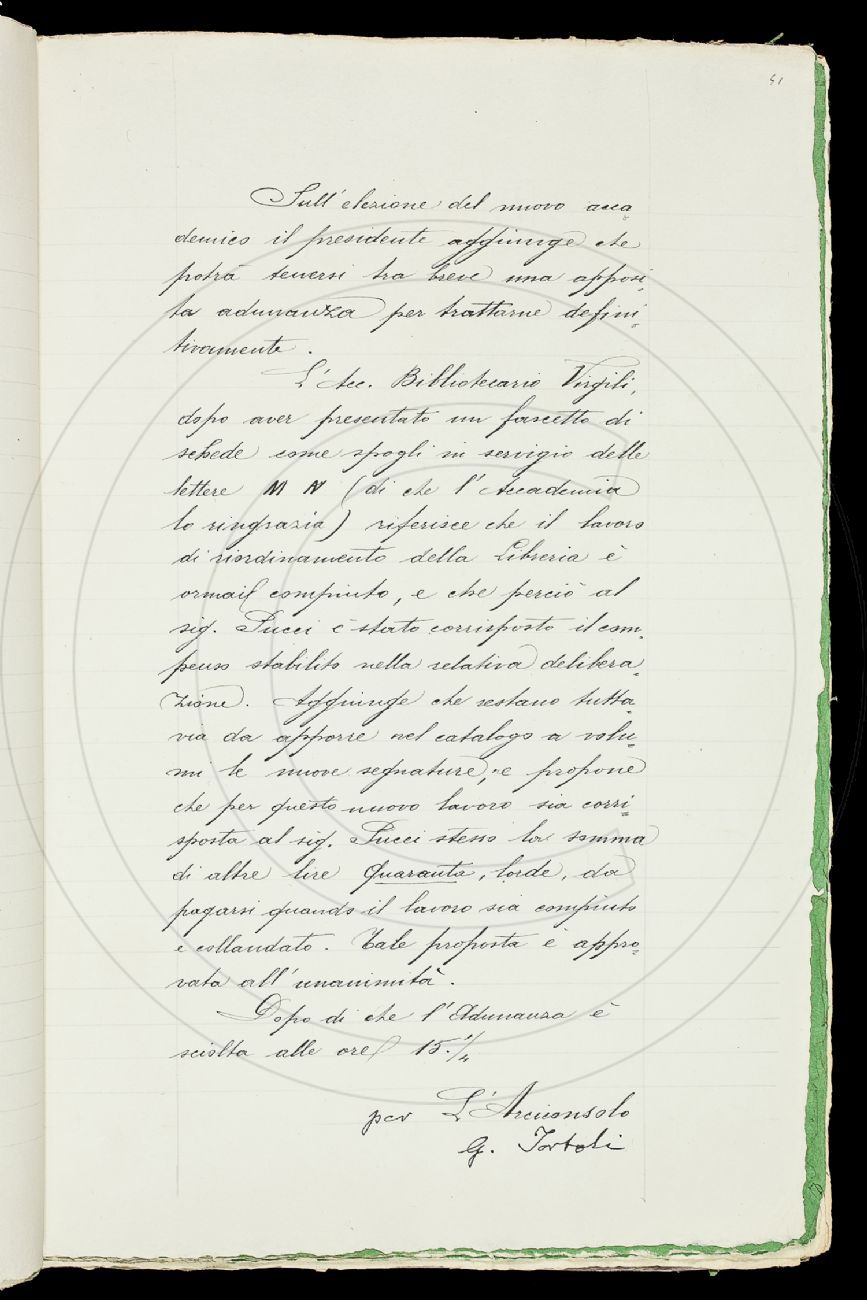 51
Sull'elezione del nuovo acca
demico il presidente aggiunge che
potrà tenersi tra breve una apposi=
ta adunanza per trattarne defini=
tivamente.
L'Acc. Bibliotecario Virgili,
dopo aver presentato un fascetto di
schede come spogli in servigio delle
lettere M N (di che l'Accademia
lo ringrazia) riferisce che il lavoro
di riordinamento della Libreria è
ormai compiuto, e che perciò al
sig. Pucci è stato corrisposto il com=
penso stabilito nella relativa delibera=
zione. Aggiunge che restano tutta=
via da apporre nel catalogo a volu=
mi le nuove segnature, e propone
che per questo nuovo lavoro sia corri=
sposta al sig. Pucci stesso la somma
di altre lire quaranta, lorde, da
pagarsi quando il lavoro sia compiuto
e collaudato. Tale proposta è appro=
vata all'unanimità.
Dopo di che l'Adunanza è
sciolta alle ore 15 1/4
per L'Arciconsolo
G. Tortoli